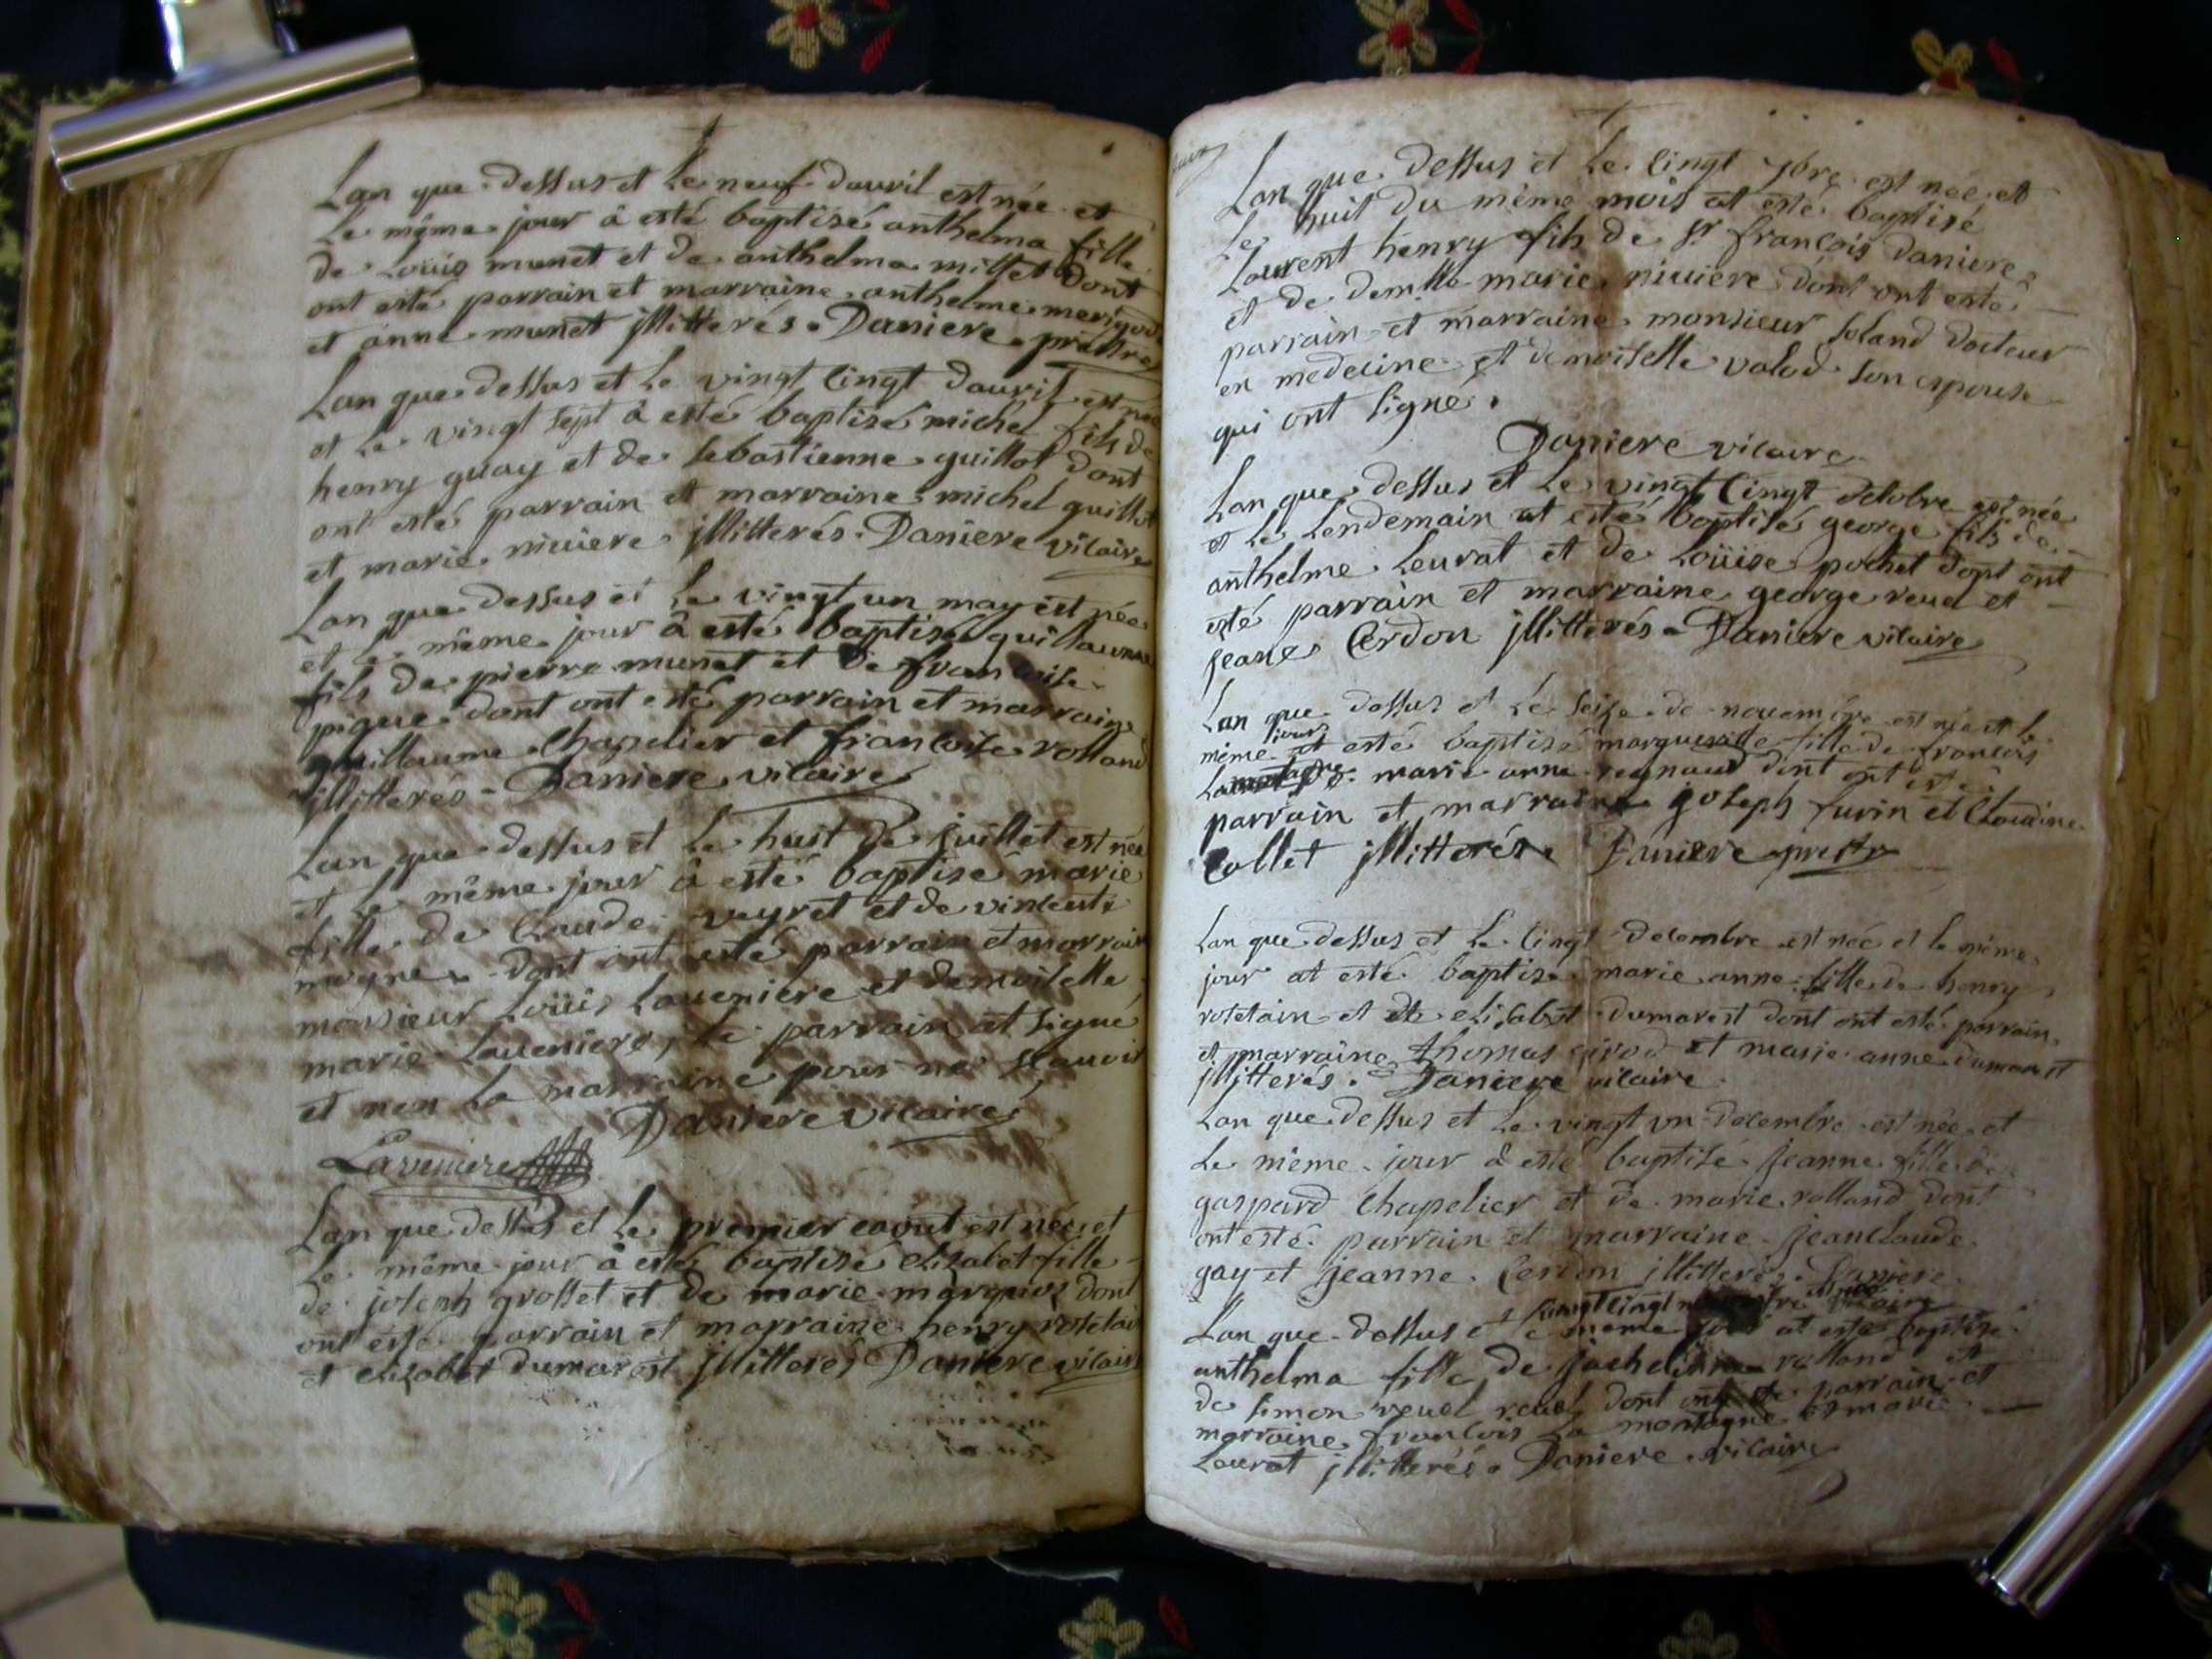 Lan que dessus et le neuf davril est née et
le même jour â esté baptisé anthelma fille
de Loüis munet et de anthelma millet dont
ont esté parrain et marraine anthelme
et anne munet jllitterés. Daniere prêstre
Lan que dessus et le vingt cingt davril est née
et le vingt sept â esté baptisé michel fils de
henry guay et de sebastienne guillot dont
ont esté parrain et marraine michel guillot
et marie niuiere jllitterés. Daniere vicaire
Lan que dessus et le vingt un may est née
et le même jour â esté baptisé guillaume
fils de pierre munet et de francoise
pique dont ont esté parrain et marraine
guillaume chapelier et francoise rolland
jllitterés - Daniere vicaire
Lan que dessus et le huit de juillet est née
et le même jour â esté baptisé marie
fille de claude veyret et de vincente
moyne dont ont esté parrain et marraine
monsieur Loüis Laueniere et demoiselle
marie Laueniere, le parrain at signé
et non la marraine pour ne scauoir
Daniere vicaire
Laveniere
Lan que dessus et le premier aout est née et
le même jour â esté baptisé elizabet fille
de joseph grosset et de marie dont
ont esté parrain et marraine henry rotelain
et elizabet dumarest jllitterés Daniere vicaire
Lan que dessus et le cingt 7bre est née et
le huit du même mois at esté baptisé
Laurent henry fils de Sr francois daniere
et de demlle marie niuiere dont ont esté
parrain et marraine monsieur soland docteur
en medecine et demoiselle valod son epouse
qui ont signé.
Daniere vicaire
Lan que dessus et le vingt cingt octobre est née
et le lendemain at esté baptisé george fils de
anthelme leurat et de Loüise pochet dont ont
esté parrain et marraine george reuel et
jeane Cerdon jllitterés - Daniere vicaire
Lan que dessus et le seize de nouembre est née et le
même jour at esté baptisé marguerite fille de francois
Lamontagne marie anne reynaud dont ont esté
parrain et marraine joseph furin et Claudine
Collet jllitterés Daniere prestre
Lan que dessus et le cingt decembre est née et le même
jour at esté baptisé marie anne fille de henry
rotelain et de elisabet dumarest dont ont esté parrain
et marraine thomas girod et marie anne dumarest
jllitterés. Daniere vicaire
Lan que dessus et le vingt un decembre est née et
le même jour â esté baptisé jeanne fille de
gaspard chapelier et de marie rolland dont
ont esté parrain et marraine jean claude
gay et jeanne jllitterés. Daniere
vicaire
Lan que dessus et le même jour at esté baptisé
anthelma fille de rolland et
de simon reuel dont ont esté parrain et
marraine francois La montagne et marie
Leurat jllitterés. Daniere vicaire